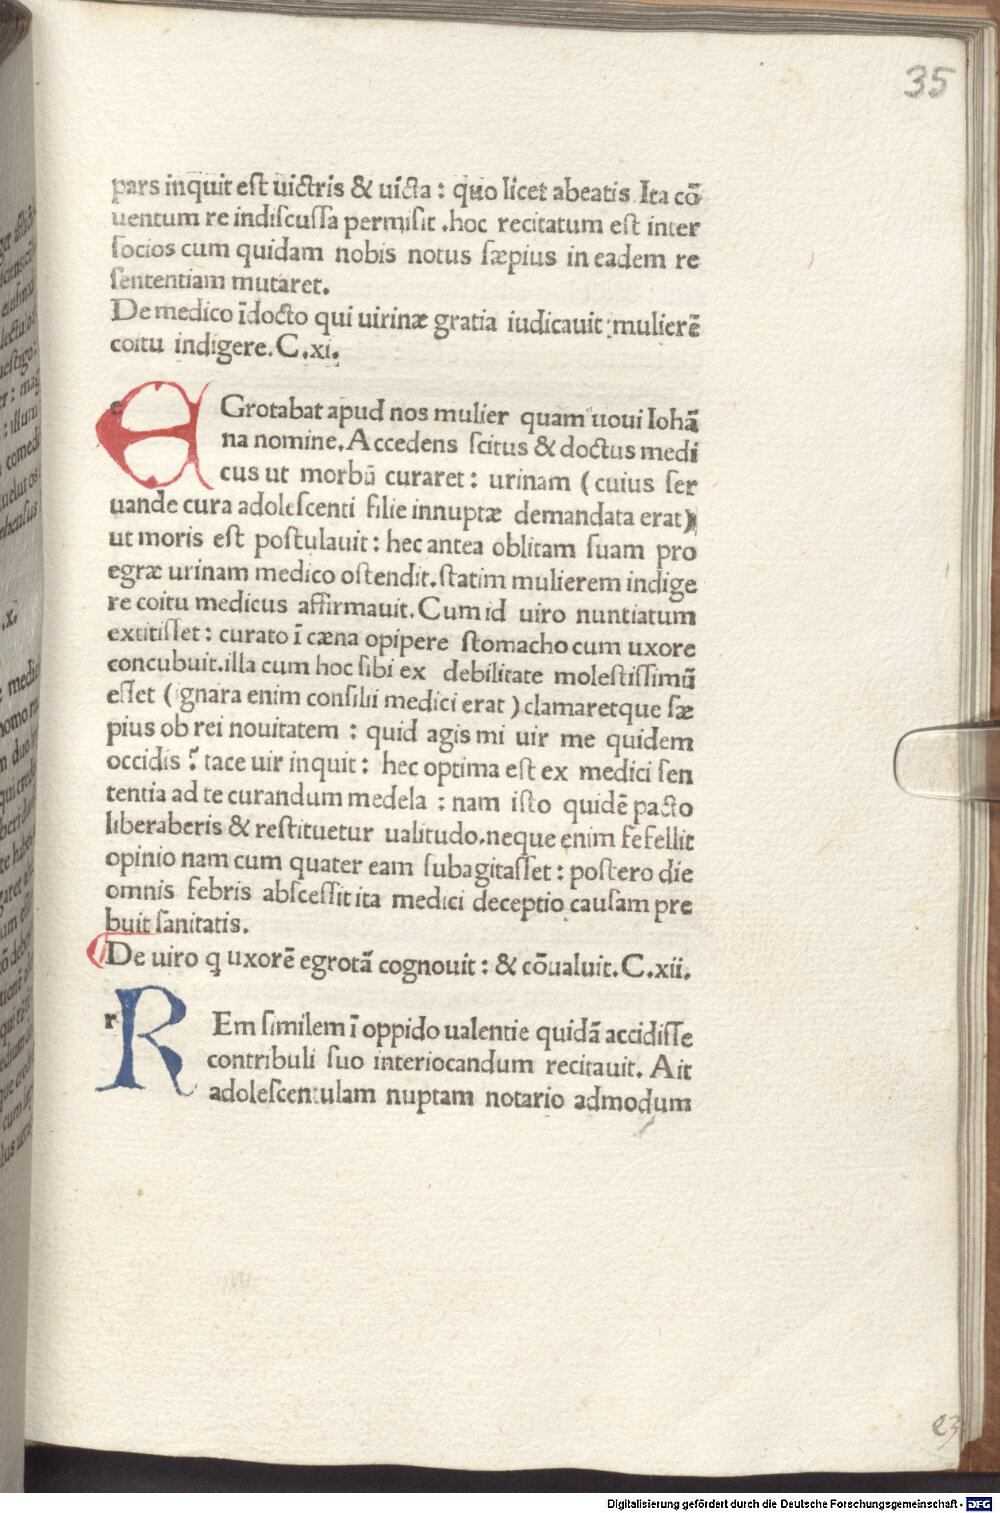 35
pars inquit est uictris & uicta : quo licet abeatis Ita cō
uentum re indiscussa permisit .hoc recitatum est inter
socios cum quidam nobis notus sæpius in eadem re
sententiam mutaret.
De medico īdocto qui uirinæ gratia iudicauit mulierē
coitu indigere.C.xi.
e E Grotabat apud nos mulier quam uoui Iohā
na nomine.Accedens scitus & doctus medi
cus ut morbū curaret : urinam ( cuius ser
uande cura adolescenti filie innuptæ demandata erat)
ut moris est postulauit : hec antea oblitam suam pro
egræ urinam medico ostendit.statim mulierem indige
re coitu medicus affirmauit.Cum id uiro nuntiatum
extitisset : curato ī cæna opipere stomacho cum uxore
concubuit.illa cum hoc sibi ex debilitate molestissimū
esset ( ignara enim consilii medici erat ) clamaretque sæ
pius ob rei nouitatem : quid agis mi uir me quidem
occidis ? tace uir inquit : hec optima est ex medici sen
tentia ad te curandum medela : nam isto quidē pacto
liberaberis & restituetur ualitudo.neque enim fefellit
opinio nam cum quater eam subagitasset : postero die
omnis febris abscessit ita medici deceptio causam pre
buit sanitatis.
De uiro q uxorē egrotā cognouit : & cōualuit.C.xii.
r R Em similem ī oppido ualentie quidā accidisse
contribuli suo interiocandum recitauit. Ait
adolescentulam nuptam notario admodum
23
Digitalisierung gefördert durch die Deutsche Forschungsgemeinschaft - DFG